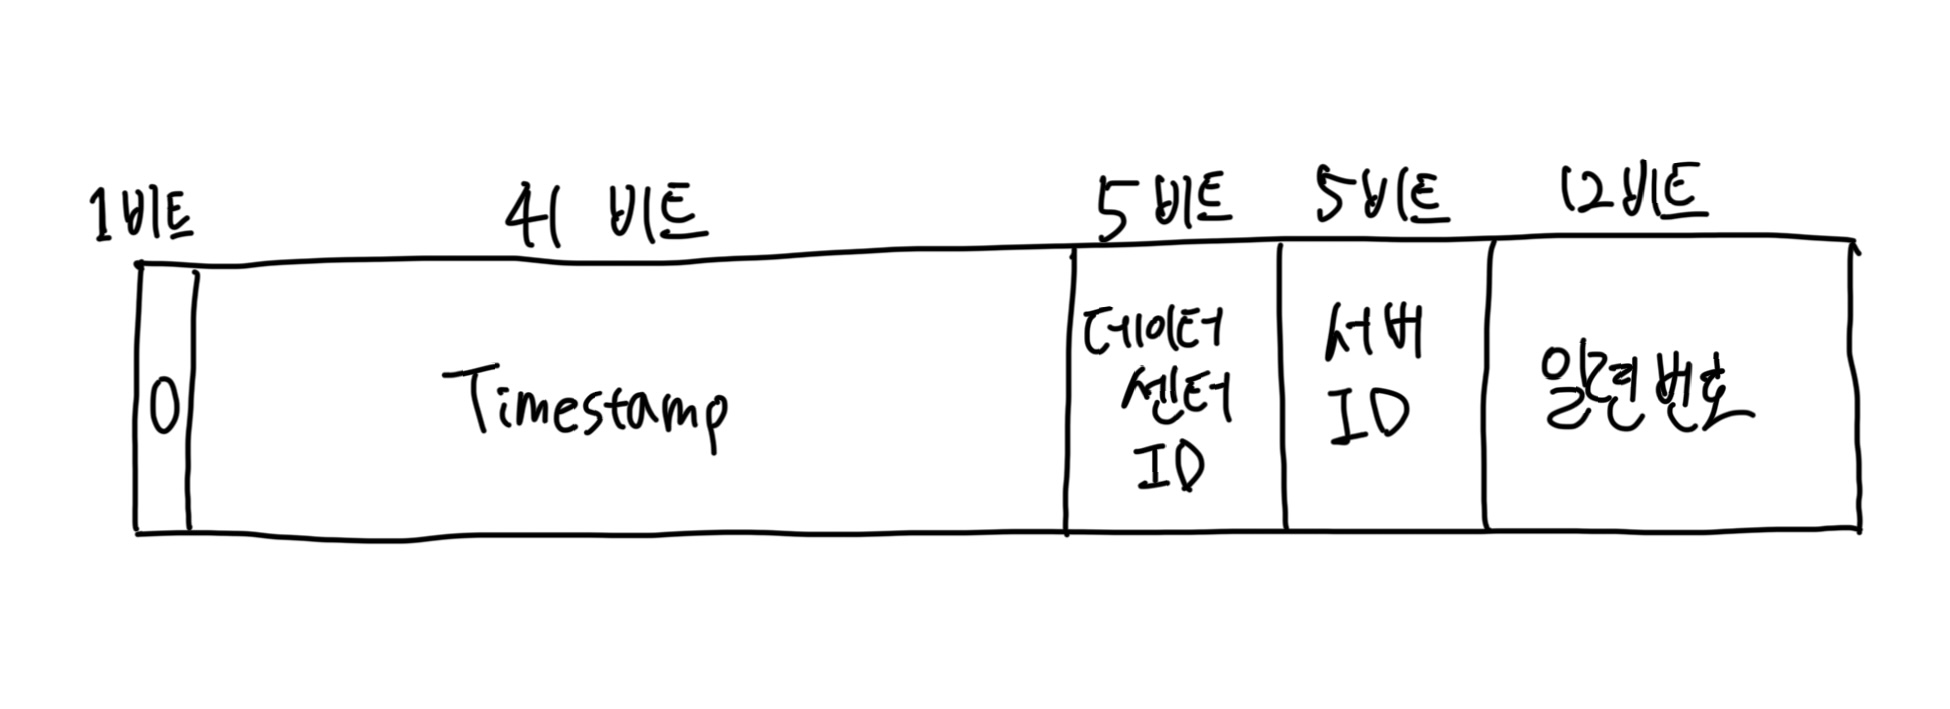 1비트 41 비트 5 비트 5비트 12비트
0
Timestamp
데이터
센터
ID
서버
ID
일련번호